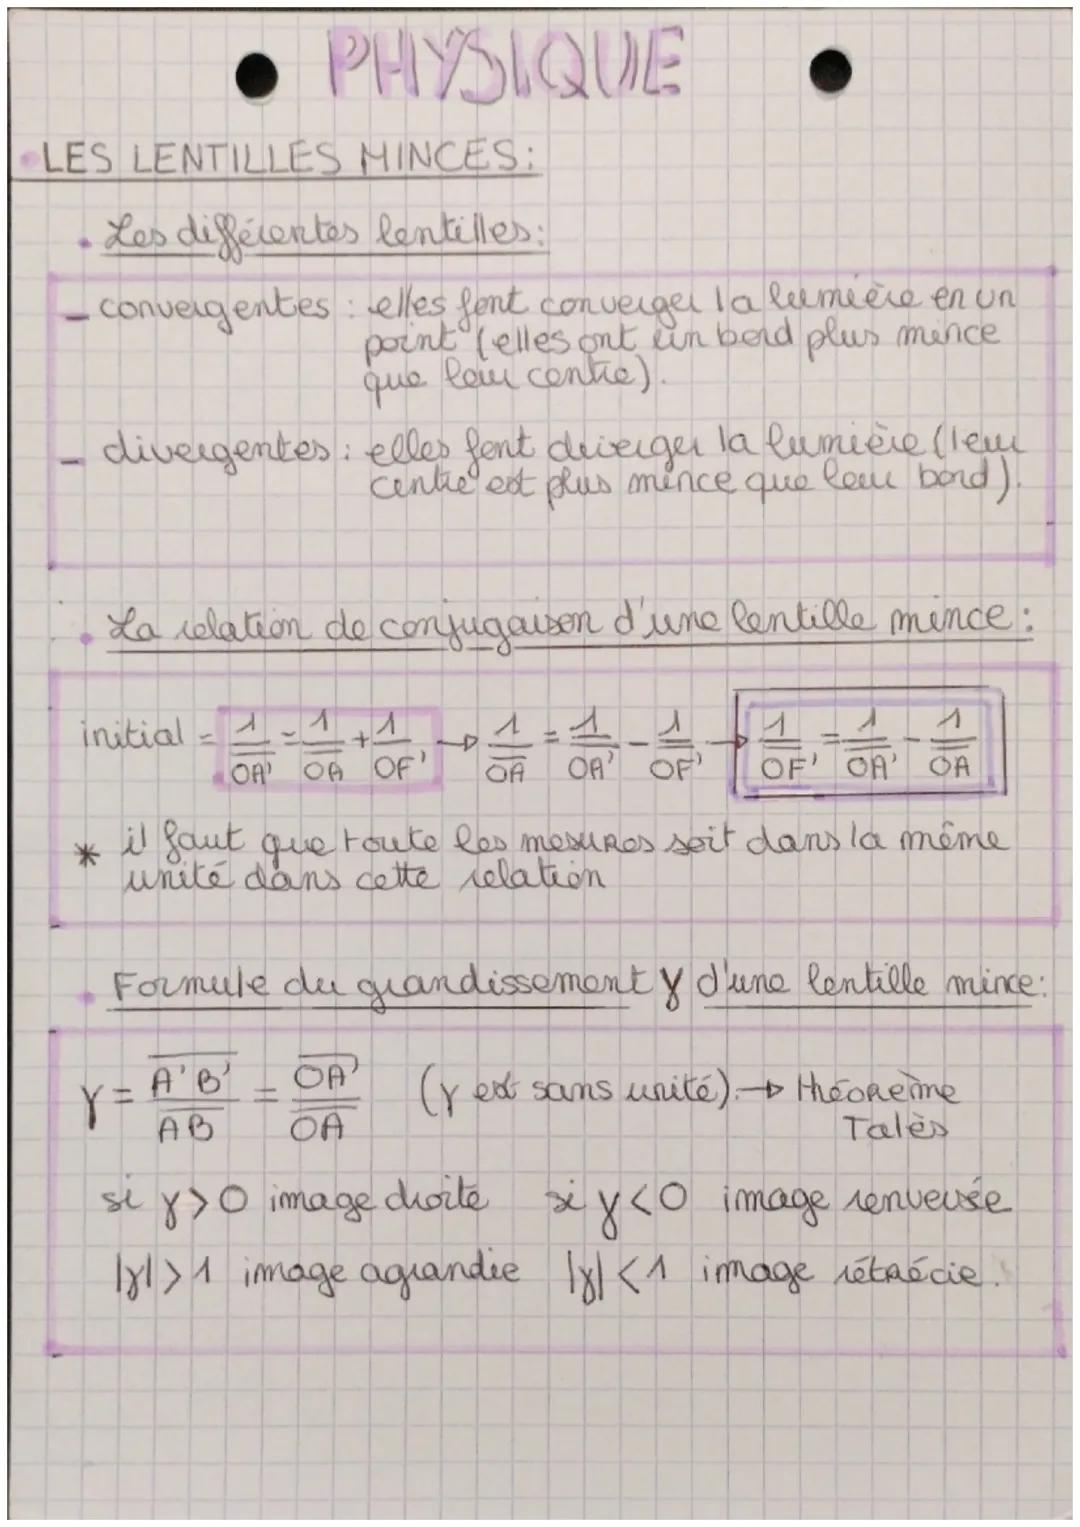 PHYSIQUE
LES LENTILLES MINCES:
. Les différentes lentilles:
- convergentes : elles font converger la lumière en un
point (elles ont un bord plus mince
que leur centre).
- divergentes : elles font diverger la lumière (leur
centre est plus mince que leur bord).
. La relation de conjugaison d'une lentille mince :
initial = 1/O̅A̅' = 1/O̅A̅ + 1/O̅F̅' → 1/O̅A̅ = 1/O̅A̅' - 1/O̅F̅' → 1/O̅F̅' = 1/O̅A̅' - 1/O̅A̅
* il faut que toute les mesures soit dans la même
unité dans cette relation
. Formule du grandissement γ d'une lentille mince:
γ = A̅'B̅'/A̅B̅ = O̅A̅'/O̅A̅ (γ est sans unité). → théorème
Talès
si γ > 0 image droite si γ < 0 image renversée
|γ| > 1 image agrandie |γ| < 1 image rétrécie.